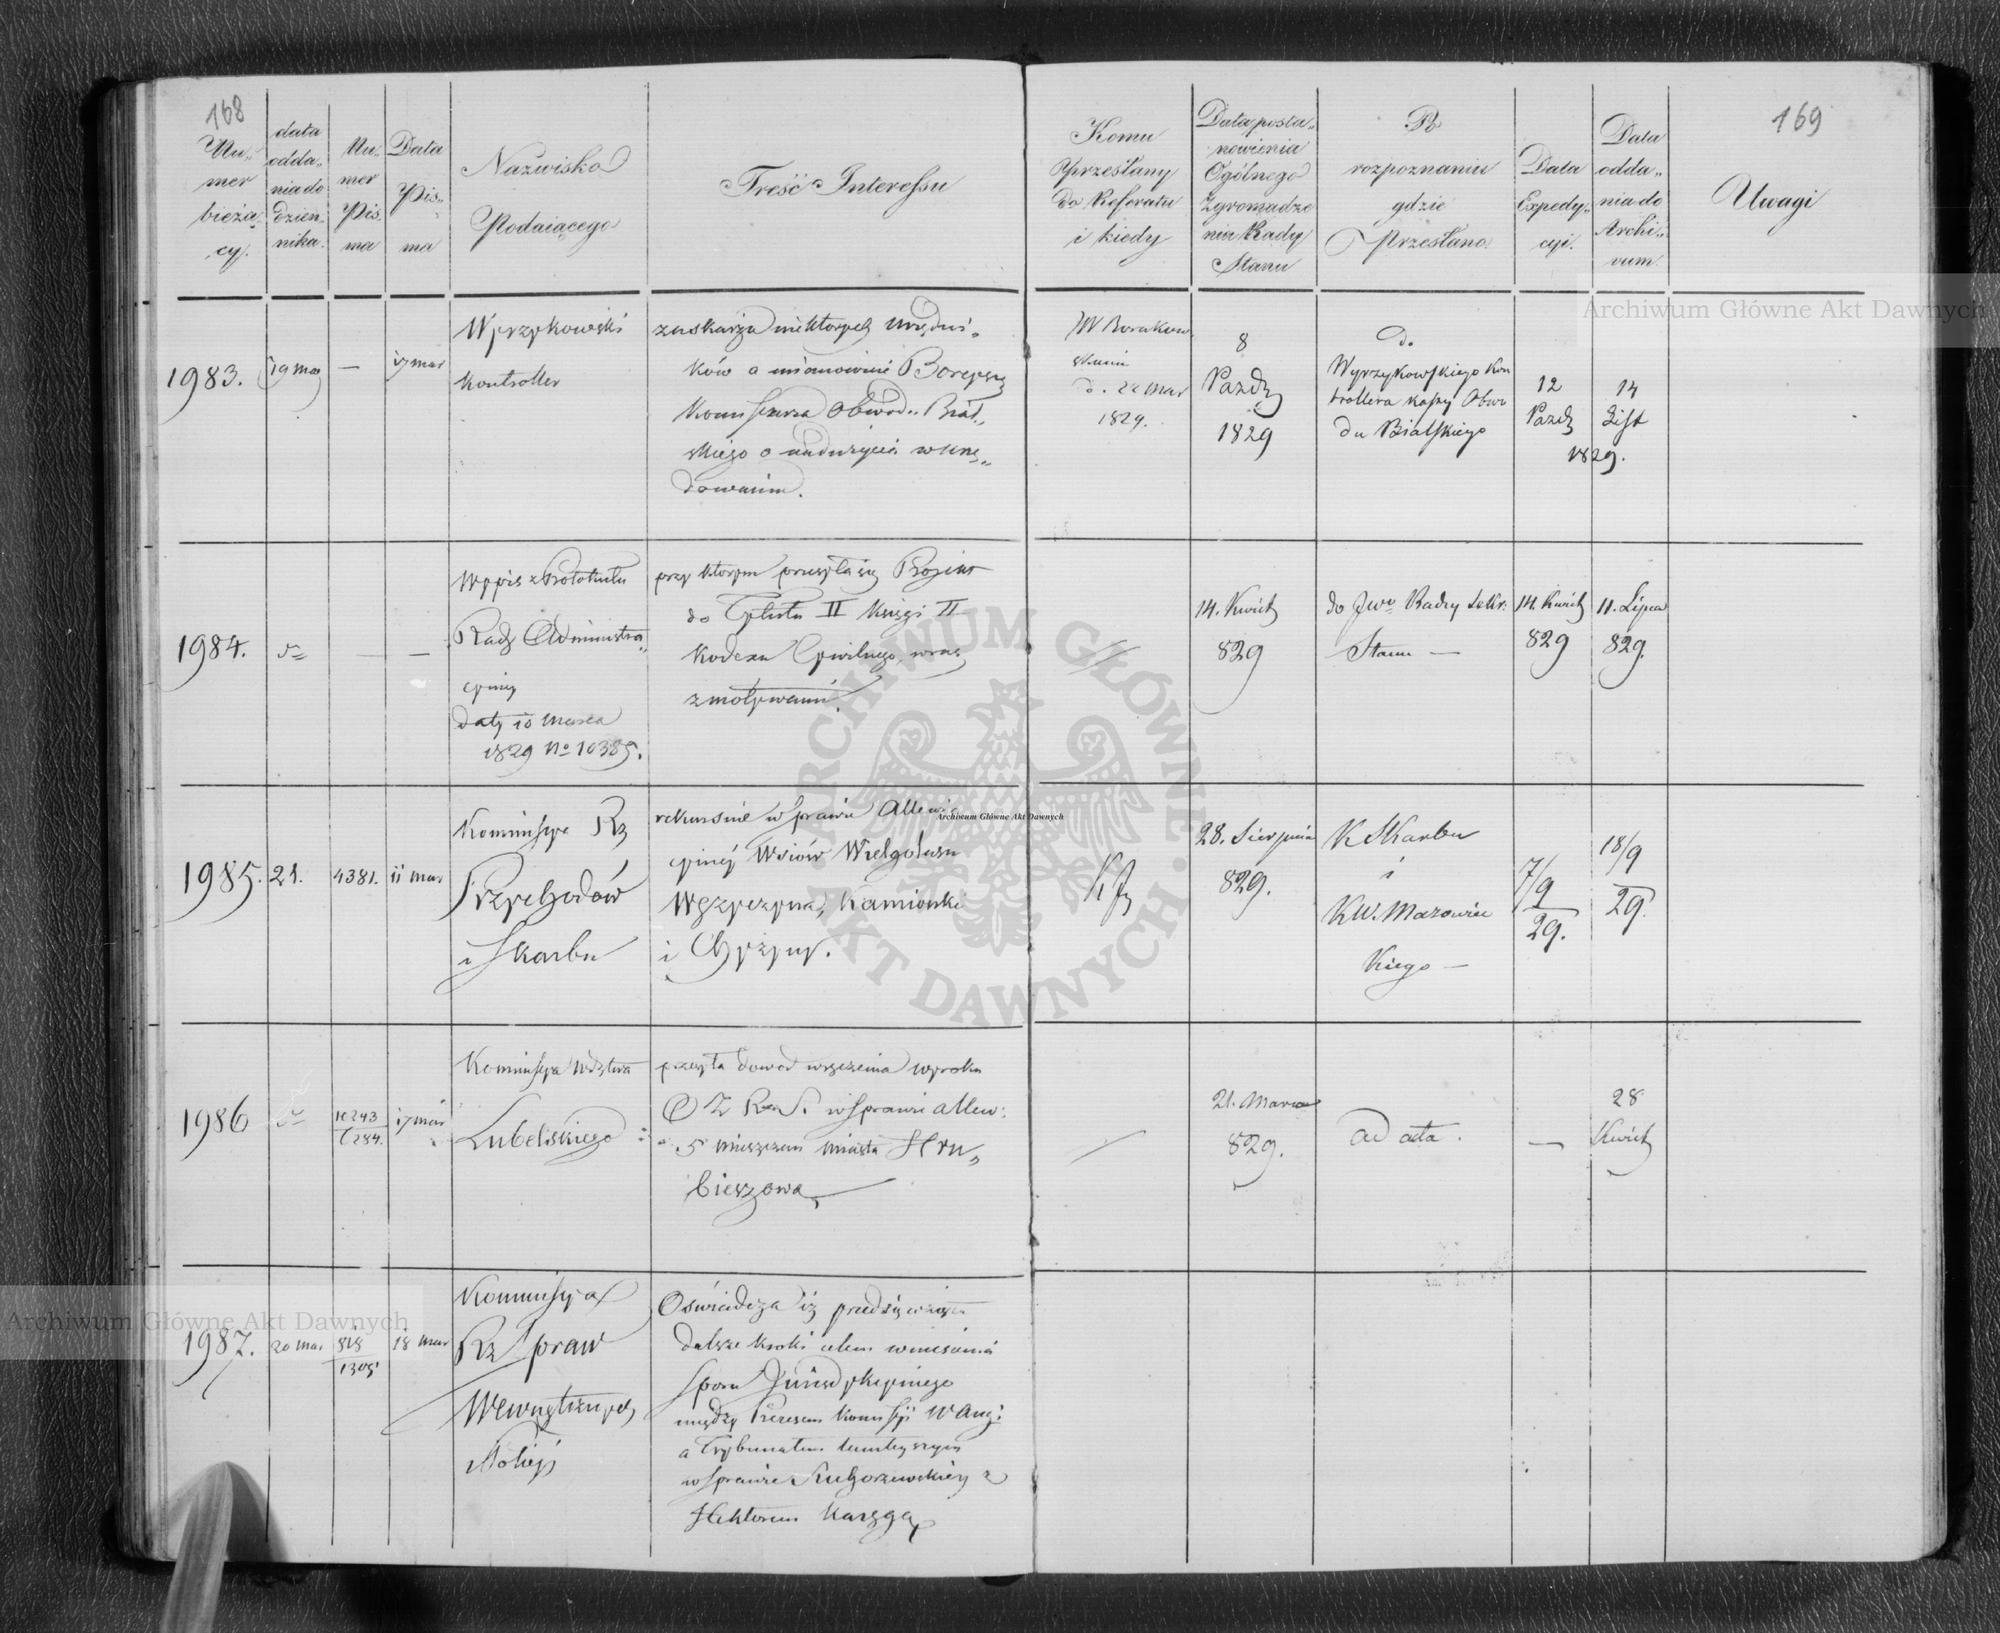 168
Nu-
mer
bieżą
cy.
data
odda„
nia do
dzien-
nika.
Nu-
mer
Pis
ma
Data
Pis„
ma
Nazwisko
Podaiącego
Treść Interessu
Komu
Przesłany
do Referatu
i kiedy
Data posta„
nowienia
Ogólnego
Zgromadze
nia Rady
Stanu
Po
rozpoznaniu
gdzie
Przesłano
Data
Expedy„
cyi.
Data
odda„
nia do
Archi„
vum.
Uwagi
169
1983.
19 mar
—
17 mar
Wyrzykowski
Kontroller
zaskarża niektórych urzędni„
ków a mianowicie
Kommissarza Obwodu Bial„
skiego o nadużycia w urzę„
dowaniu.
d. 22 mar
1829.
8
Pazdz
1829
do
Wyrzykowskiego Kon
trollera Kassy Obwo
du Bialskiego
12
Pazdz
14
List
1829.
1984.
—
—
Wypis z Protokułu
Rady Administra„
cyiney
daty 10 marca
1829 No 10385.
przy którym przesyła się Projekt
do Tytułu II Księgi II
Kodexu Cywilnego, wraz
z motywami.
14. Kwietz
829
do Jwo Rady Sekr:
Stanu —
14. Kwietz
829
11. Lipca
829.
1985.
21.
4381.
11 mar
Kommissya Rz
Przychodów
i Skarbu
rekurs w sprawie
cyinéj Wsiów Wielgolasu
Kamionki
i Chyżyny.
28. Sierpnia
829.
K Skarbu
i
KW. Mazowiec
kiego —
7/9
29.
18/9
29.
1986
10243
1284.
17 mar
Kommissya Wdztwa
Lubelskiego
przesyła dowód wręczenia wyroku
w sprawie
5 mieszczan miasta Hru„
bieszowa
21. Marca
829.
ad acta.
—
28
Kwietz
1987.
20 mar
818
1305
18 mar
Kommissya
Rz Spraw
Wewnętrznych
i Policyi
Oświadcza iż przedsięwzięła
dalsze kroki celem wniesienia
sporu Jurisdykcyinego
między Prezesem Komissyi
a Trybunałem tamteyszym
w sprawie z
Hektorem
Archiwum Główne Akt Dawnych
Archiwum Główne Akt Dawnych
Archiwum Główne Akt Dawnych
ARCHIWUM GŁÓWNE · AKT DAWNYCH ·